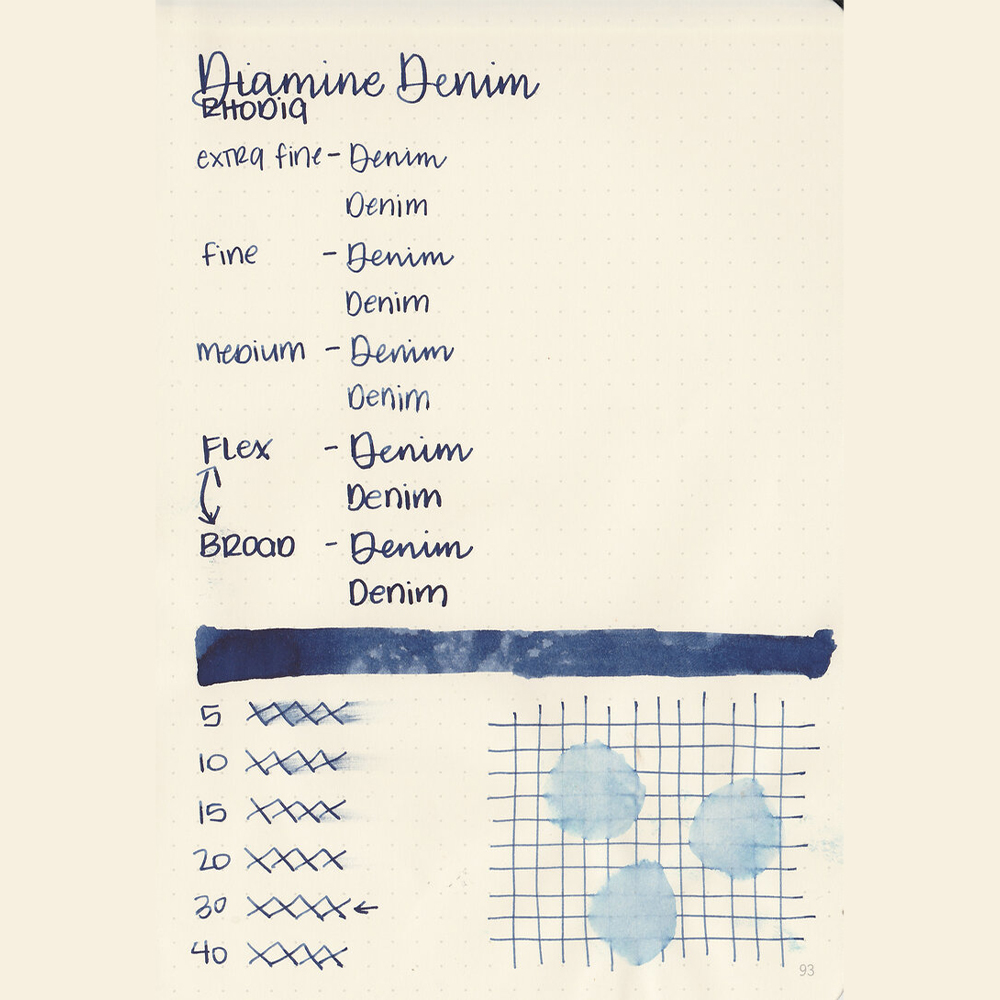 Diamine Denim
RHODIA
extra fine - Denim
Denim
fine - Denim
Denim
medium - Denim
Denim
Flex - Denim
Denim
BROAD - Denim
Denim
5 XXXX
10 XXXX
15 XXXX
20 XXXX
30 XXXX ←
40 XXXX
93